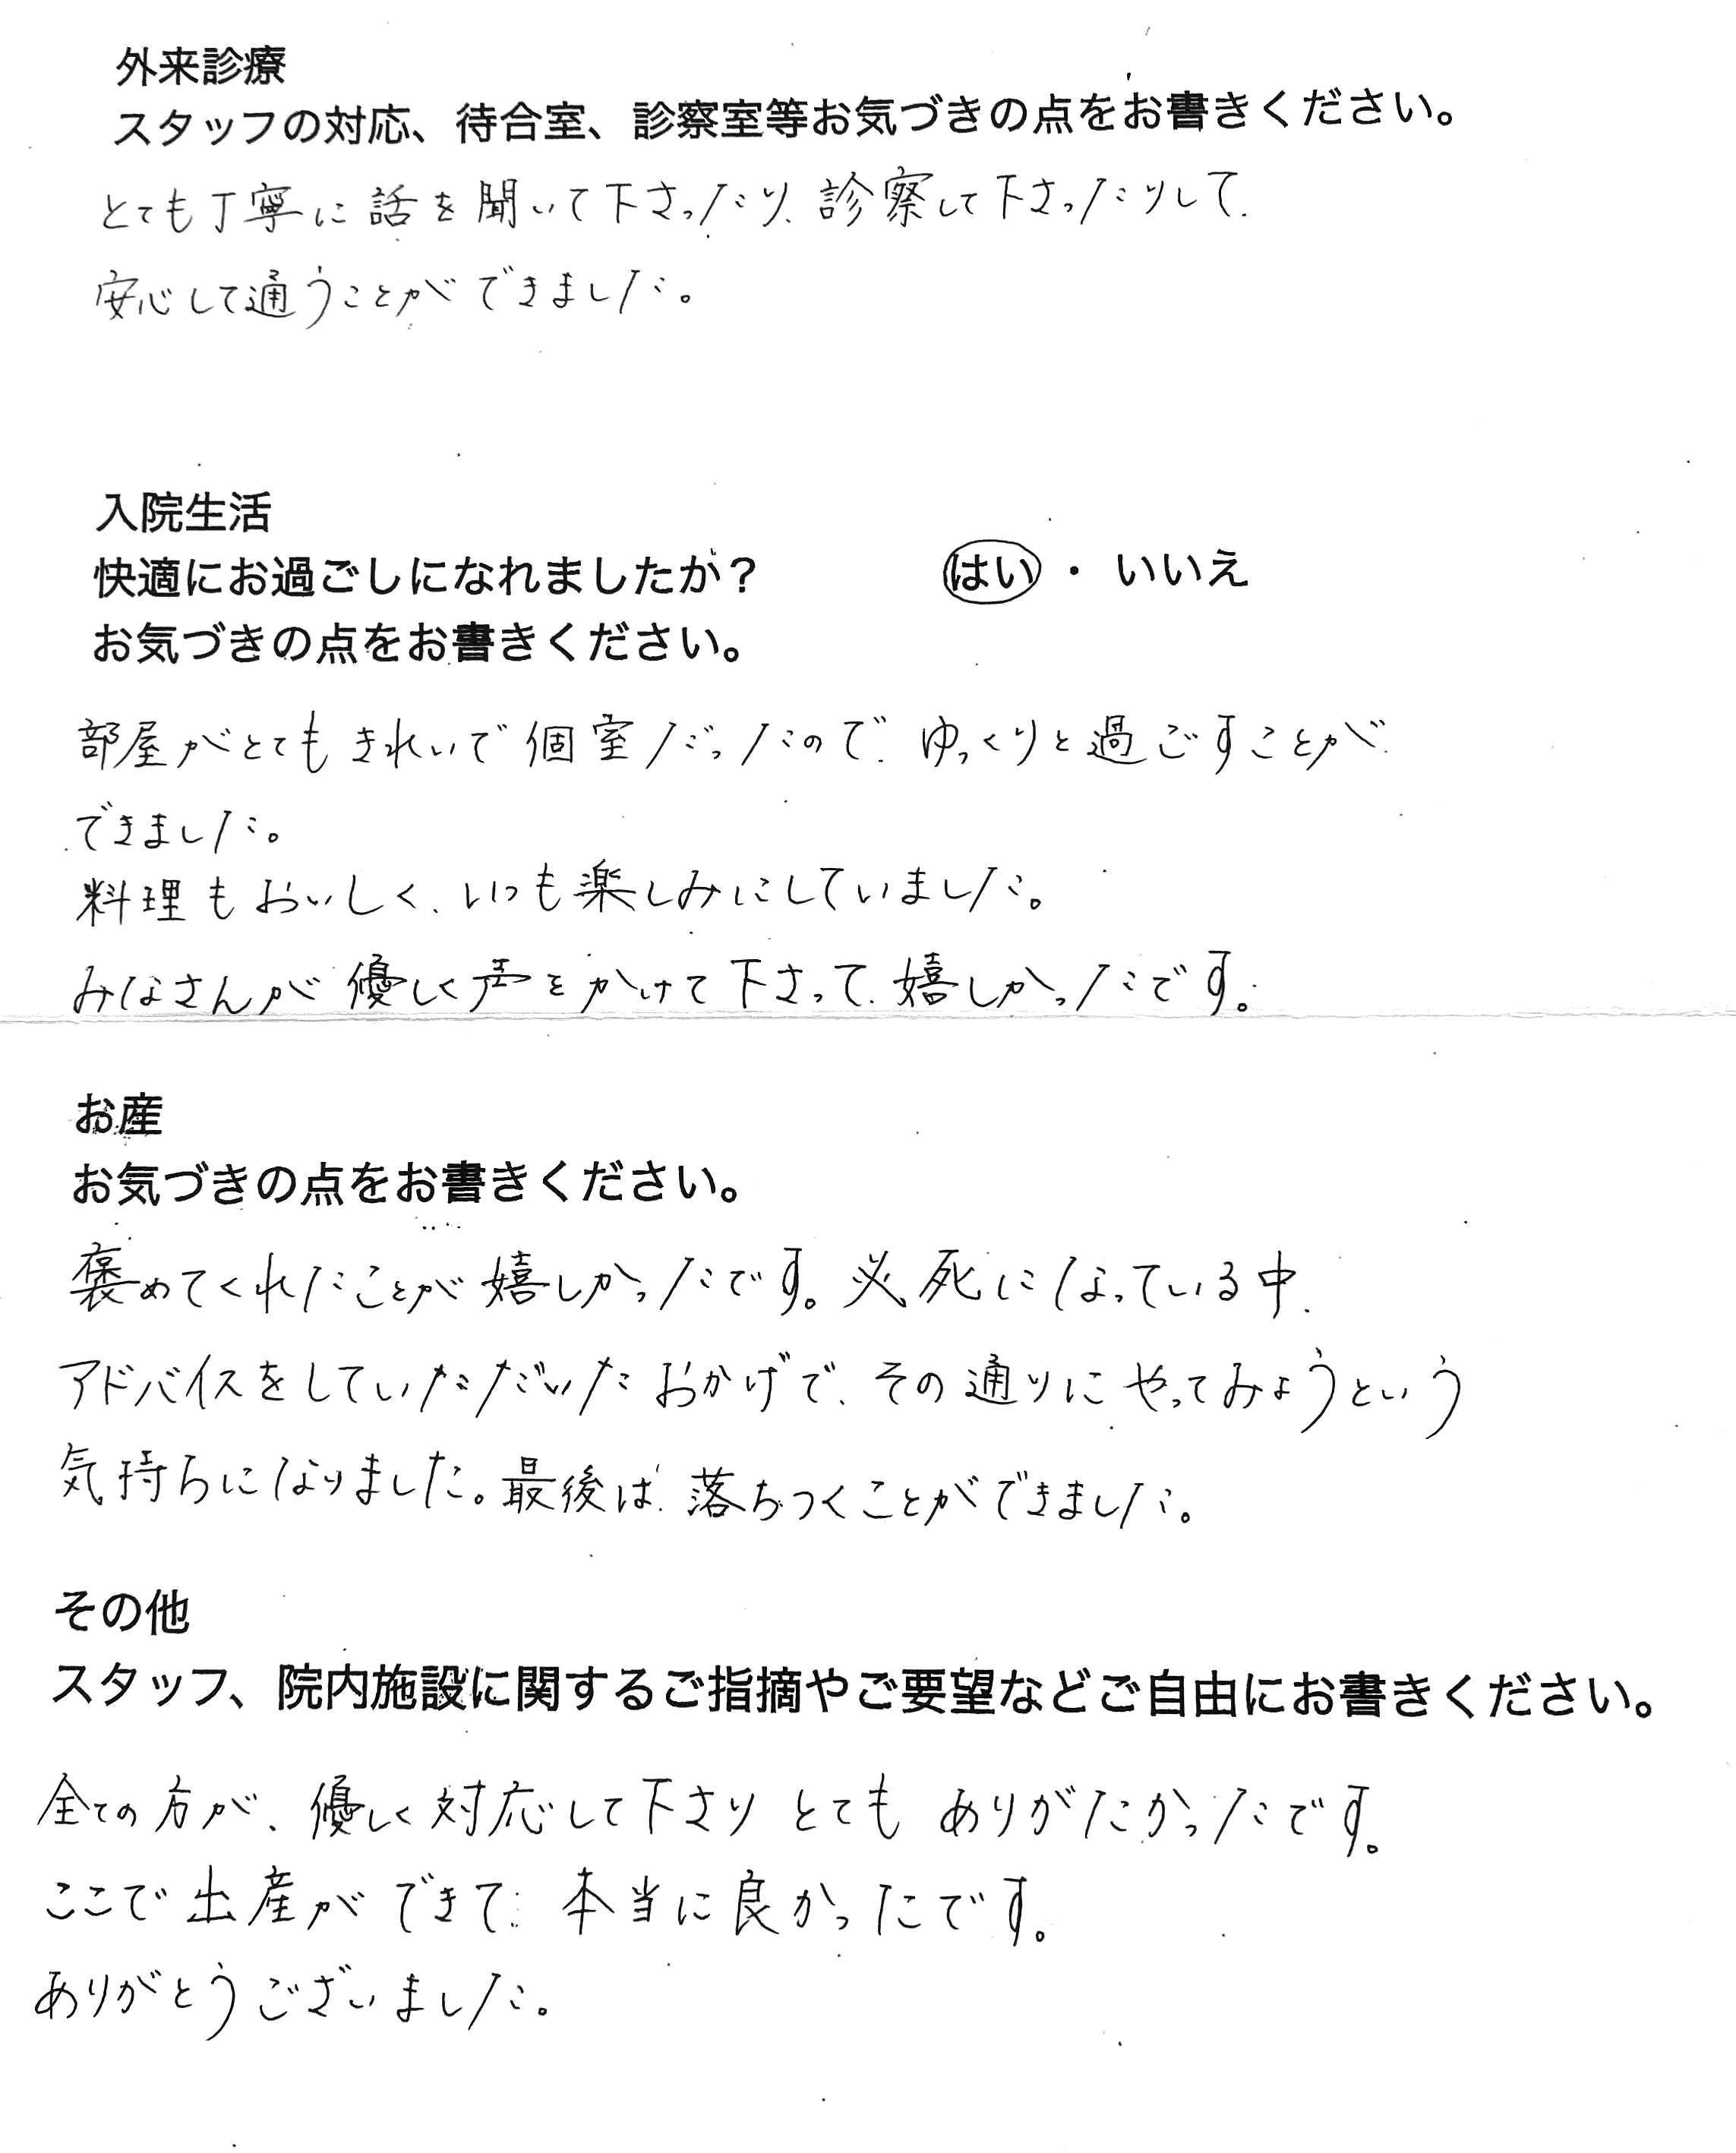 外来診療
スタッフの対応、待合室、診察室等お気づきの点をお書きください。
とても丁寧に話を聞いて下さったり、診察して下さったりして、
安心して通うことができました。
入院生活
快適にお過ごしになれましたか？ はい ・ いいえ
お気づきの点をお書きください。
部屋がとてもきれいで個室だったので、ゆっくりと過ごすことが
できました。
料理もおいしく、いつも楽しみにしていました。
みなさんが優しく声をかけて下さって、嬉しかったです。
お産
お気づきの点をお書きください。
褒めてくれたことが嬉しかったです。必死になっている中、
アドバイスをしていただいたおかげで、その通りにやってみようという
気持ちになりました。最後は、落ちつくことができました。
その他
スタッフ、院内施設に関するご指摘やご要望などご自由にお書きください。
全ての方が、優しく対応して下さりとてもありがたかったです。
ここで出産ができて、本当に良かったです。
ありがとうございました。